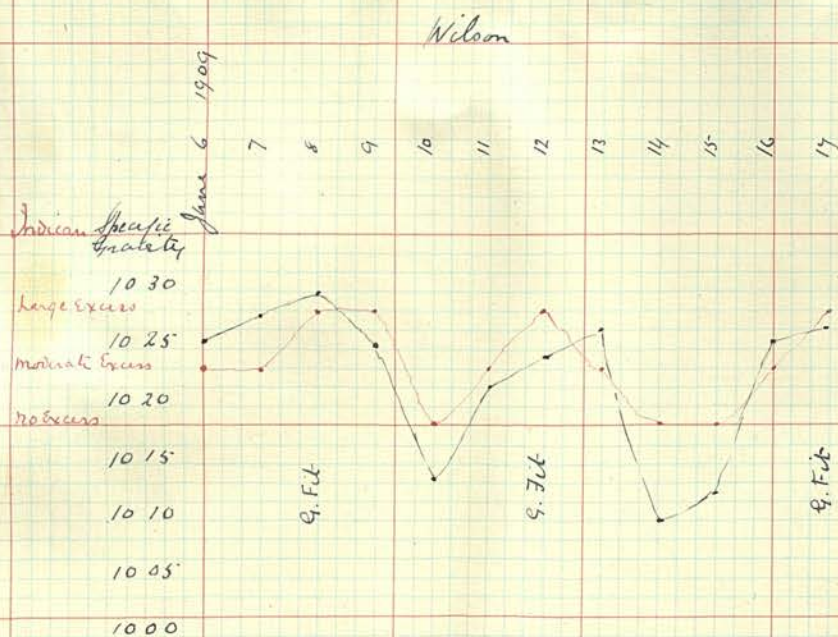 Wilson
June 6 1909
7
8
9
10
11
12
13
14
15
16
17
Indican Specific
Gravity
10 30
Large Excess
10 25
moderate Excess
10 20
no Excess
10 15
G. Fit
G. Fit
G. Fit
10 10
10 05
10 00